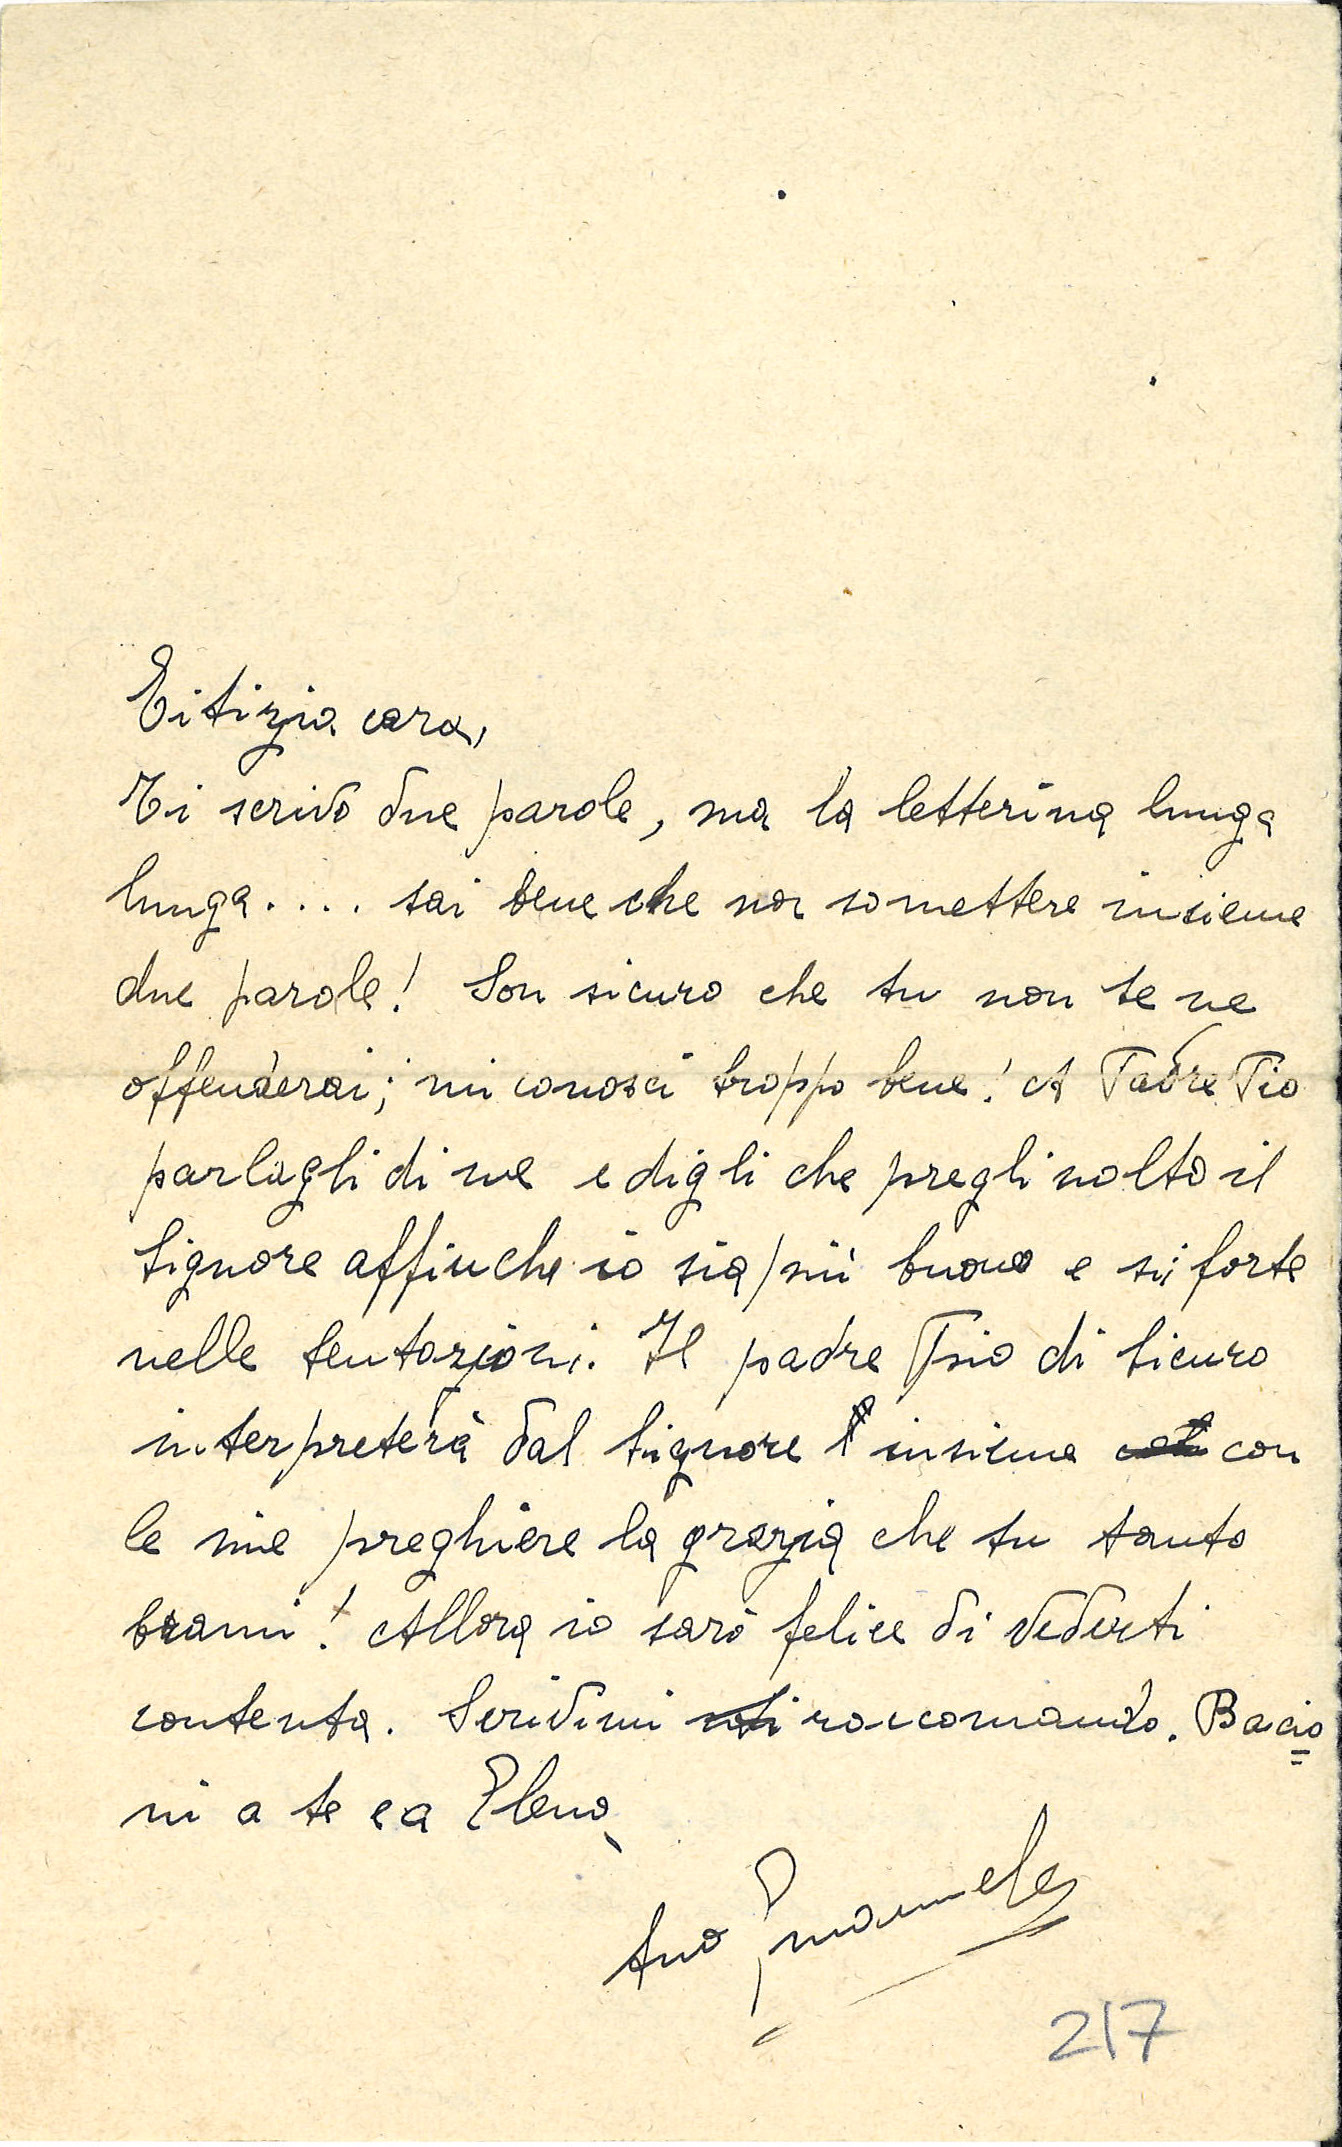 Titizia cara,
Ti scrivo due parole, ma la letterina lunga
lunga.... sai bene che non so mettere insieme
due parole! Son sicuro che tu non te ne
offenderai; mi conosci troppo bene! A Padre Pio
parlagli di me e digli che preghi molto il
Signore affinche io sia più buono e sii forte
nelle tentazioni. Il padre Pio di sicuro
interpreterà dal Signore insieme con
le mie preghiere la grazia che tu tanto
brami! Allora io sarò felice di vederti
contenta. Scrivimi mi raccomando. Bacio
ni a te e a Elena
tuo Emanuele
217